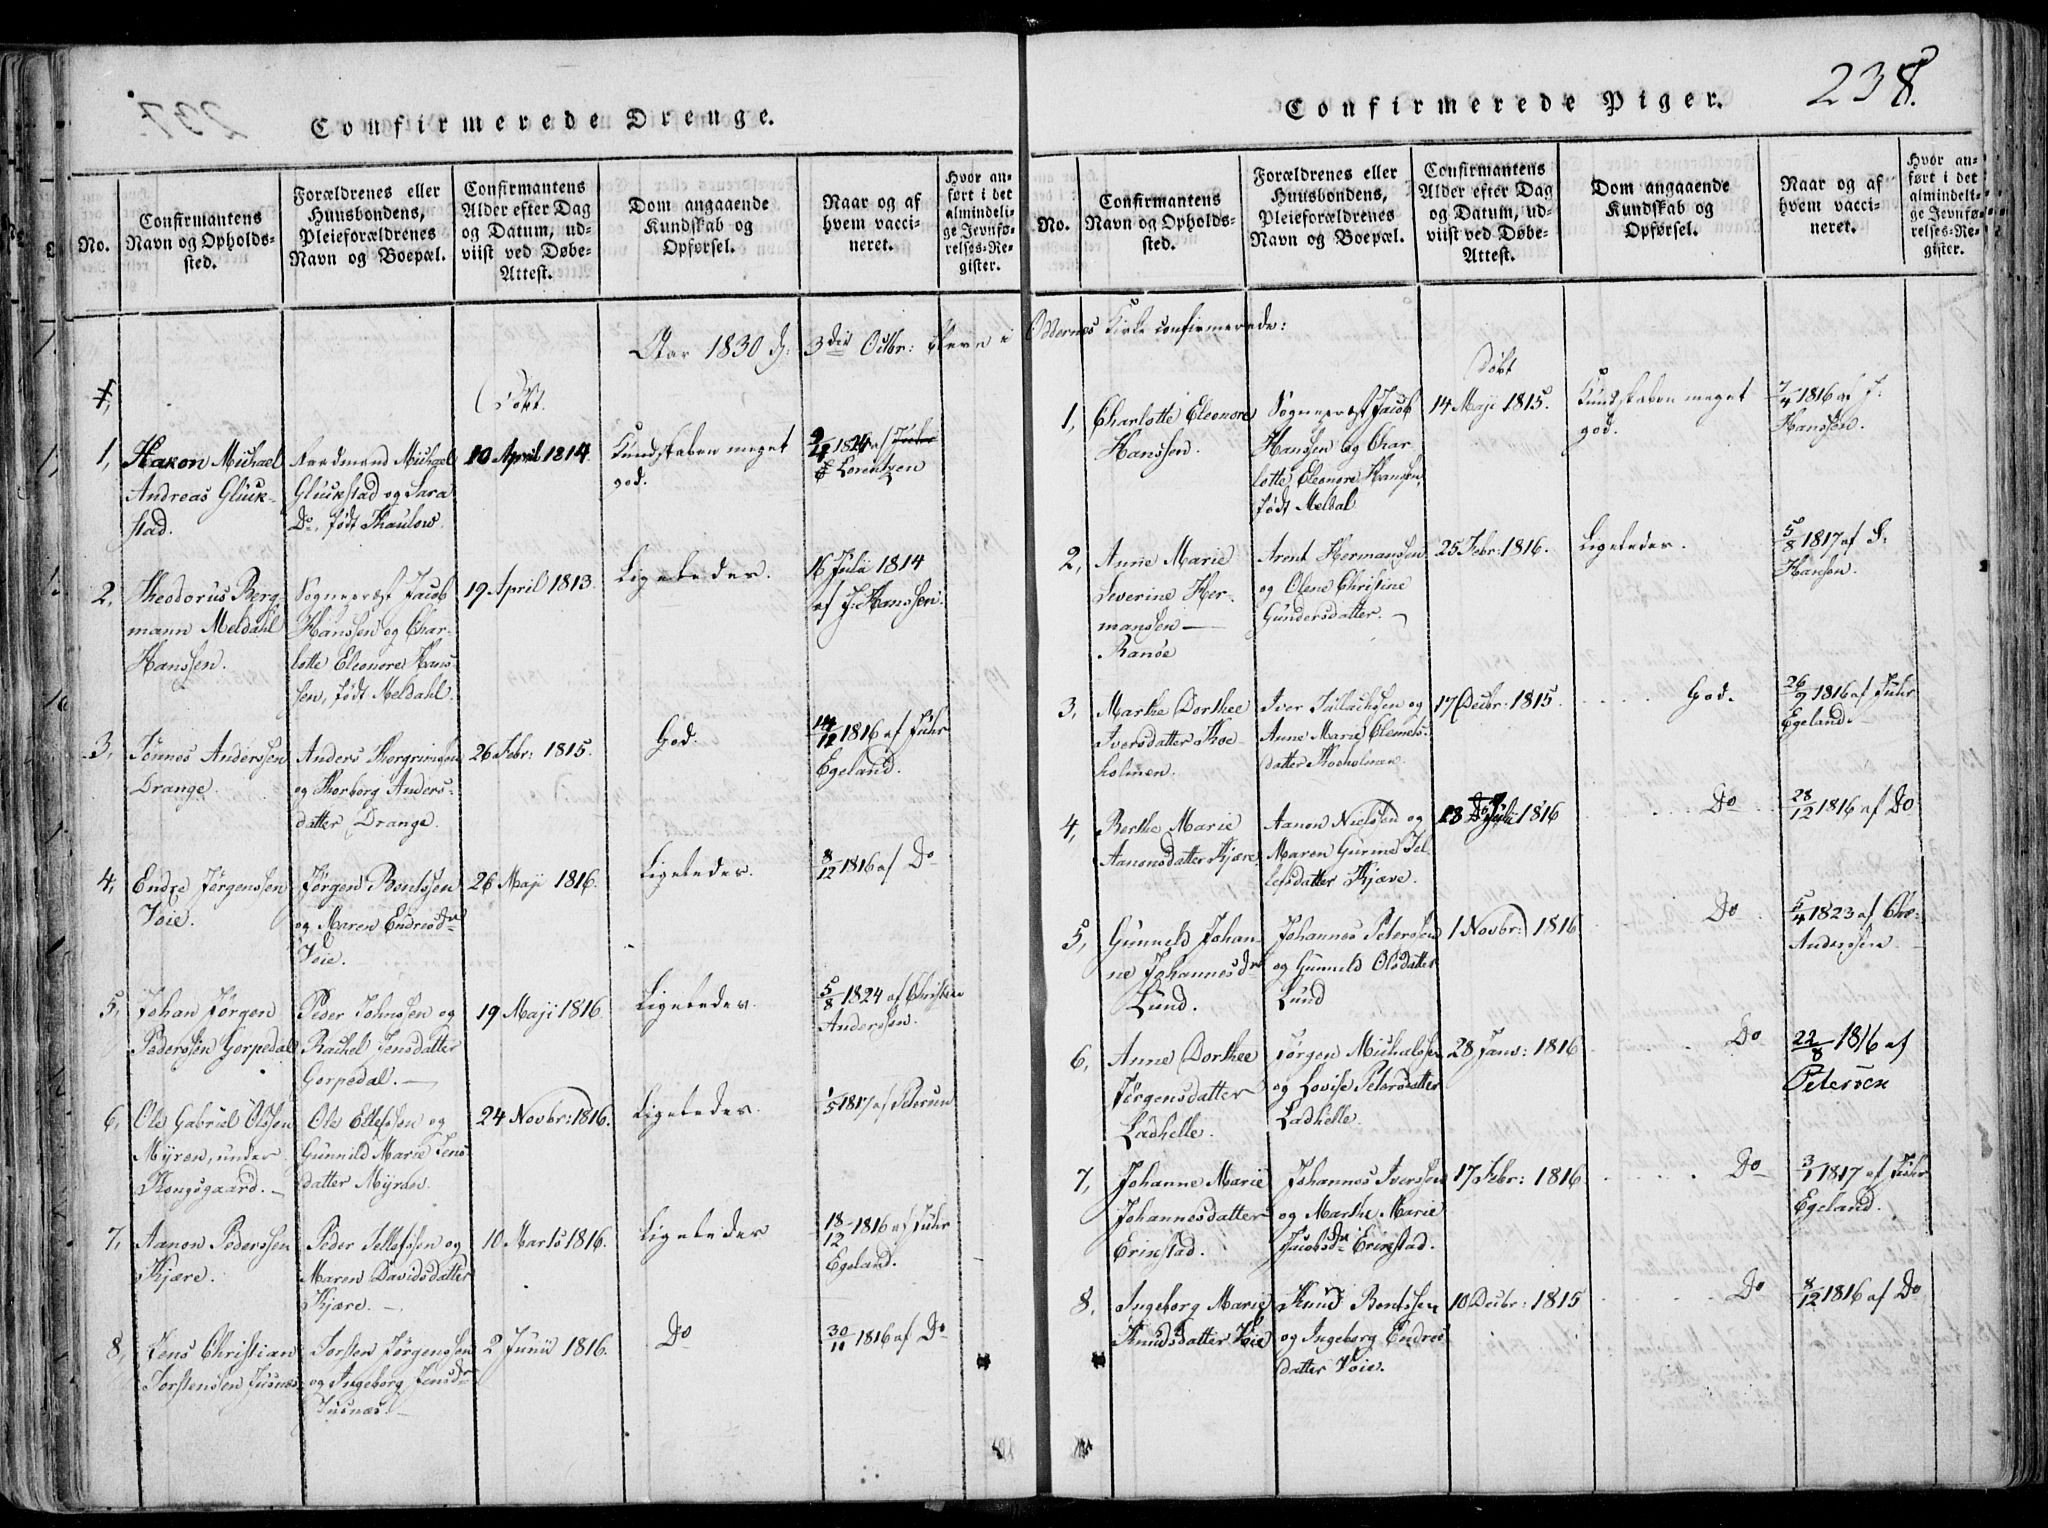 Confirmerede Drenge.
No.
Confirmantens
Navn og Opholds-
sted.
Forældrenes eller
Huusbondens,
Pleieforældrenes
Navn og Boepæl.
Confirmantens
Alder efter Dag
og Datum, ud-
viist ved Døbe-
Attest.
Dom angaaende
Kundskab og
Opførsel.
Naar og af
hvem vacci-
neret.
Hvor an-
ført i det
almindeli-
ge Jevnfø-
relses-Re-
gister.
Aar 1830 d: 3die Octbr: bleve i
Døbt.
1,
Hakon Michael
Andreas Glück-
stad.
Michael
Glückstad og Sara
Do, født Thaulow.
10 April 1814
Kundskaben meget
god.
1824 af
Lorentzen
2,
Theodorus Berg-
mann Meldahl
Hanssen.
Sognepræst Jacob
Hanssen og Char-
lotte Eleonore Hans-
sen, født Meldahl.
19 April 1813.
Ligeledes.
16 Juli 1814
af J: Hanssen.
3,
Tønnes Anderssen
Drange.
Anders Thorgrimsen
og Thorborg Anders-
datter Drange.
26 Febr: 1815.
God.
14/12 1816 af Führ
Egeland.
4,
Endre Jørgenssen
Voie.
Jørgen Bentssen
og Maren Endresdr
Voie.
26 Maji 1816.
Ligeledes.
8/12 1816 af Do
5,
Johan Jørgen
Pederssen Gorpedal
Peder Johnssen og
Rachel Jensdatter
Gorpedal.
19 Maji 1816.
Ligeledes.
5/8 1824 af Christen
Anderssen.
6,
Ole Gabriel Olssen
Myren, under
Kongsgaard.
Ole Ellefssen og
Gunnild Marie Jens
datter Myren.
24 Novbr: 1816.
Ligeledes.
1/5 1817 af Petersen
7,
Aanon Pederssen
Kjære.
Peder Tellefssen og
Maren Davidsdatter
Kjære.
10 Marts 1816.
Ligeledes
18/12 1816 af Führ
Egeland.
8,
Jens Christian
Torstensen Jusnæs
Torsten Jørgenssen
og Ingeborg Jensdr
Jusnæs.
2 Junii 1816.
Do
30/11 1816 af Do
Confirmerede Piger.
238.
No.
Confirmantens
Navn og Opholds-
sted.
Forældrenes eller
Huusbondens,
Pleieforældrenes
Navn og Boepæl.
Confirmantens
Alder efter Dag
og Datum, ud-
viist ved Døbe-
Attest.
Dom angaaende
Kundskab og
Opførsel.
Naar og af
hvem vacci-
neret.
Hvor an-
ført i det
almindeli-
ge Jevnfø-
relses-Re-
gister.
Oddernes Kirke confirmerede:
Døbt
1,
Charlotte Eleonore
Hanssen.
Sognepræst Jacob
Hanssen og Char-
lotte Eleonore Hanssen,
født Meldal
14 Maji 1815.
Kundskaben meget
god.
7/4 1816 af J:
Hanssen.
2,
Anne Marie
Severine Her-
manssen
Ranøe
Arent Hermanssen
og Olene Christine
Gundersdatter.
25 Febr: 1816.
Ligeledes.
5/8 1817 af J:
Hansen.
3,
Marthe Dorthee
Iversdatter Koe-
holmen.
Iver Tallachsen og
Anne Marie Clemets-
datter Koeholmen.
17 Decbr: 1815.
God.
26/9 1816 af Führ
Egeland.
4,
Berthe Marie
Aanonsdatter Kjære
Aanon Nielssen og
Maren Gurine Tel-
lefsdatter Kjære.
13 Juli 1816
Do
28/12 1816 af Do
5,
Gunneld Johan-
ne Johannesdr
Lund.
Johannes Peterssen
og Gunneld Olsdatter
Lund
1 Novbr: 1816
Do
5/4 1823 af Chr:
Anderssen
6,
Anne Dorthee
Jørgensdatter
Ladhelle.
Jørgen Michelssen
og Lovise Petersdatter
Ladhelle.
28 Janv: 1816
Do
22/8 1816 af
Petersen
7,
Johanne Marie
Johannesdatter
Erikstad.
Johannes Iverssen
og Marthe Marie
Jacobsdr Erikstad.
17 Febr: 1816
Do
3/1 1817 af Führ
Egeland.
8,
Ingeborg Marie
Knudsdatter Voie
Knud Bentssen
og Ingeborg Endres
datter Voie.
10 Decbr: 1815
Do
8/12 1816 af Do